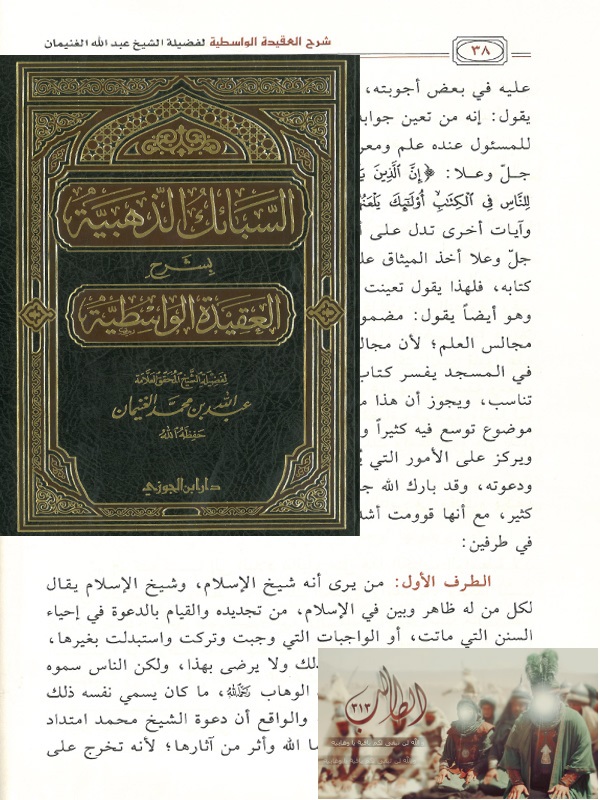 ٣٨
شرح العقيدة الواسطية لفضيلة الشيخ عبد الله الغنيمان
عليه في بعض أجوبته،
يقول: إنه من تعين جوابه
للمسئول عنده علم
جلّ وعلا: ﴿إِنَّ الَّذِينَ
لِلنَّاسِ فِي الْكِتَابِ أُولَئِكَ
وآيات أخرى تدل على
جلّ وعلا أخذ الميثاق
كتابه، فلهذا يقول تعينت
وهو أيضاً يقول:
مجالس العلم؛ لأن
في المسجد يفسر كتاب
تناسب، ويجوز أن هذا
موضوع توسع فيه كثيراً
ويركز على الأمور التي
ودعوته، وقد بارك الله
كثير، مع أنها قوومت
في طرفين:
السبائك الذهبية
بشرح
العقيدة الواسطية
لفضيلة الشيخ المحقق العلامة
عبد الله بن محمد الغنيمان
حفظه الله
دار ابن الجوزي
الطرف الأول: من يرى أنه شيخ الإسلام، وشيخ الإسلام يقال
لكل من له ظاهر وبين في الإسلام، من تجديده والقيام بالدعوة في إحياء
السنن التي ماتت، أو الواجبات التي وجبت وتركت واستبدلت بغيرها،
ولا يرضى بهذا، ولكن الناس سموه
الوهاب رَحِمَهُ اللهُ، ما كان يسمي نفسه ذلك
والواقع أن دعوة الشيخ محمد امتداد
الله وأثر من آثارها؛ لأنه تخرج على
الطالب
٣١٣